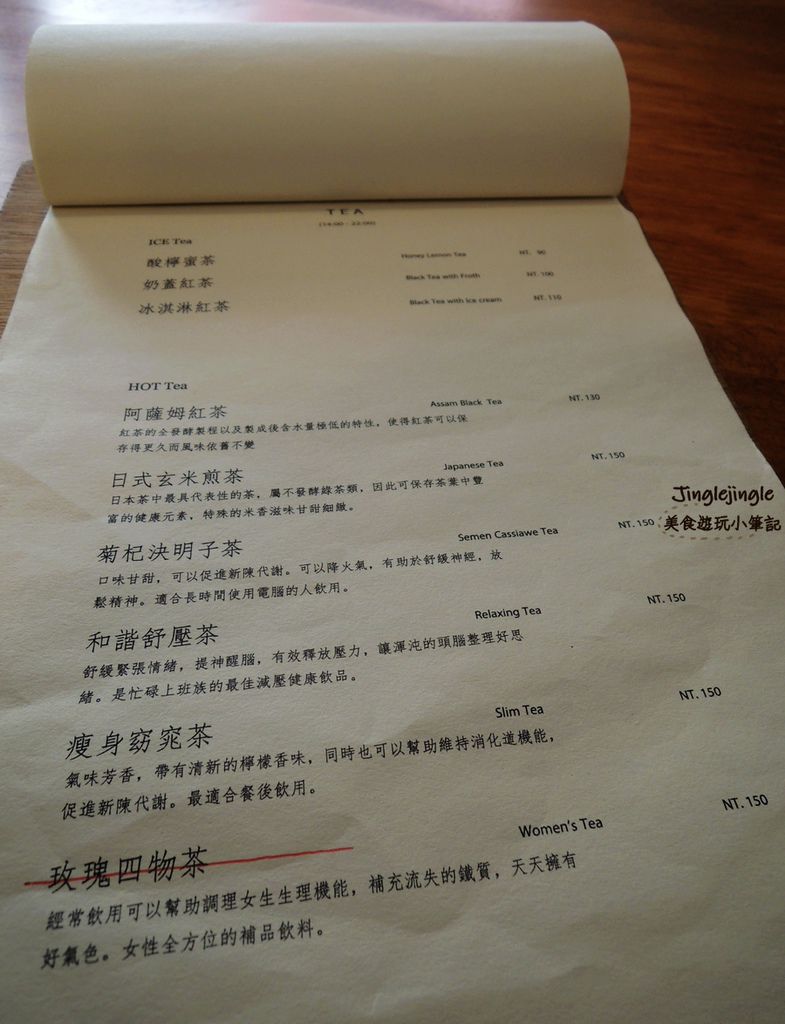 TEA
(14:00 - 22:00)
ICE Tea
酸檸蜜茶 Honey Lemon Tea NT. 90
奶蓋紅茶 Black Tea with Froth NT. 100
冰淇淋紅茶 Black Tea with Ice cream NT. 110
HOT Tea
阿薩姆紅茶 Assam Black Tea NT. 130
紅茶的全發酵製程以及製成後含水量極低的特性，使得紅茶可以保
存得更久而風味依舊不變
日式玄米煎茶 Japanese Tea NT. 150
日本茶中最具代表性的茶，屬不發酵綠茶類，因此可保存茶葉中豐
富的健康元素，特殊的米香滋味甘甜細緻。
菊杞決明子茶 Semen Cassiawe Tea NT. 150
口味甘甜，可以促進新陳代謝。可以降火氣，有助於舒緩神經，放
鬆精神。適合長時間使用電腦的人飲用。
和諧舒壓茶 Relaxing Tea NT. 150
舒緩緊張情緒，提神醒腦，有效釋放壓力，讓渾沌的頭腦整理好思
緒。是忙碌上班族的最佳減壓健康飲品。
瘦身窈窕茶 Slim Tea NT. 150
氣味芳香，帶有清新的檸檬香味，同時也可以幫助維持消化道機能，
促進新陳代謝。最適合餐後飲用。
玫瑰四物茶 Women's Tea NT. 150
經常飲用可以幫助調理女生生理機能，補充流失的鐵質，天天擁有
好氣色。女性全方位的補品飲料。
Jinglejingle
美食遊玩小筆記